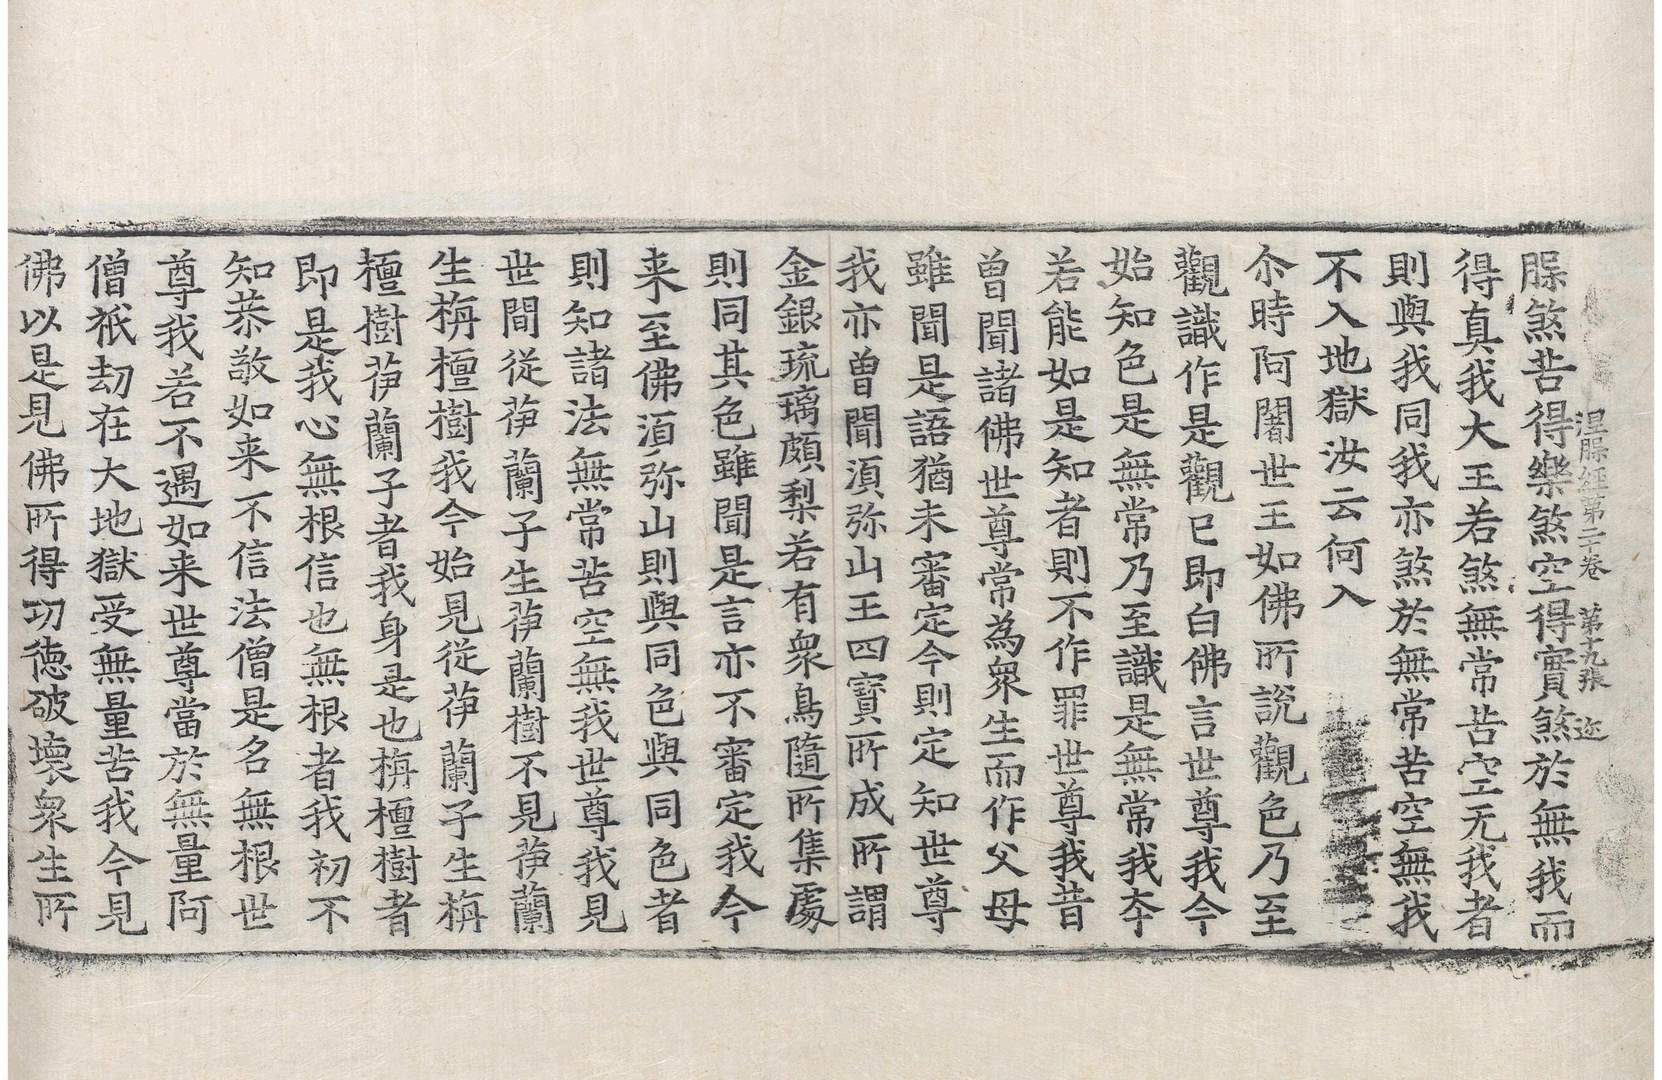 涅槃經第二十卷 第十九張 迩
槃煞苦得樂煞空得實煞於無我而
得真我大王若煞無常苦空无我者
則與我同我亦煞於無常苦空無我
不入地獄汝云何入
尒時阿闍世王如佛所說觀色乃至
觀識作是觀已即白佛言世尊我今
始知色是無常乃至識是無常我夲
若能如是知者則不作罪世尊我昔
曽聞諸佛世尊常為衆生而作父母
雖聞是語猶未審定今則定知世尊
我亦曽聞湏弥山王四寶所成所謂
金銀琉璃頗梨若有衆鳥隨所集處
則同其色雖聞是言亦不審定我今
来至佛湏弥山則與同色與同色者
則知諸法無常苦空無我世尊我見
世間従䓀蘭子生䓀蘭樹不見䓀蘭
生栴檀樹我今始見従䓀蘭子生栴
檀樹䓀蘭子者我身是也栴檀樹者
即是我心無根信也無根者我初不
知恭敬如来不信法僧是名無根世
尊我若不遇如来世尊當於無量阿
僧祇劫在大地獄受無量苦我今見
佛以是見佛所得功徳破壞衆生所